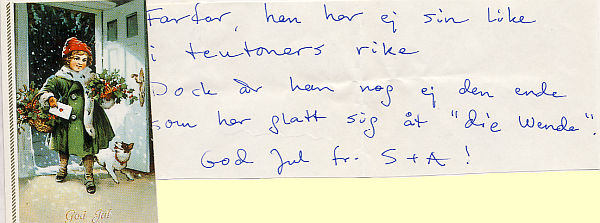 Farfar, han har ej sin like
i teutoners rike
Dock är han nog ej den ende
som har glatt sig åt "die Wende".
God Jul fr. S + A !
God Jul